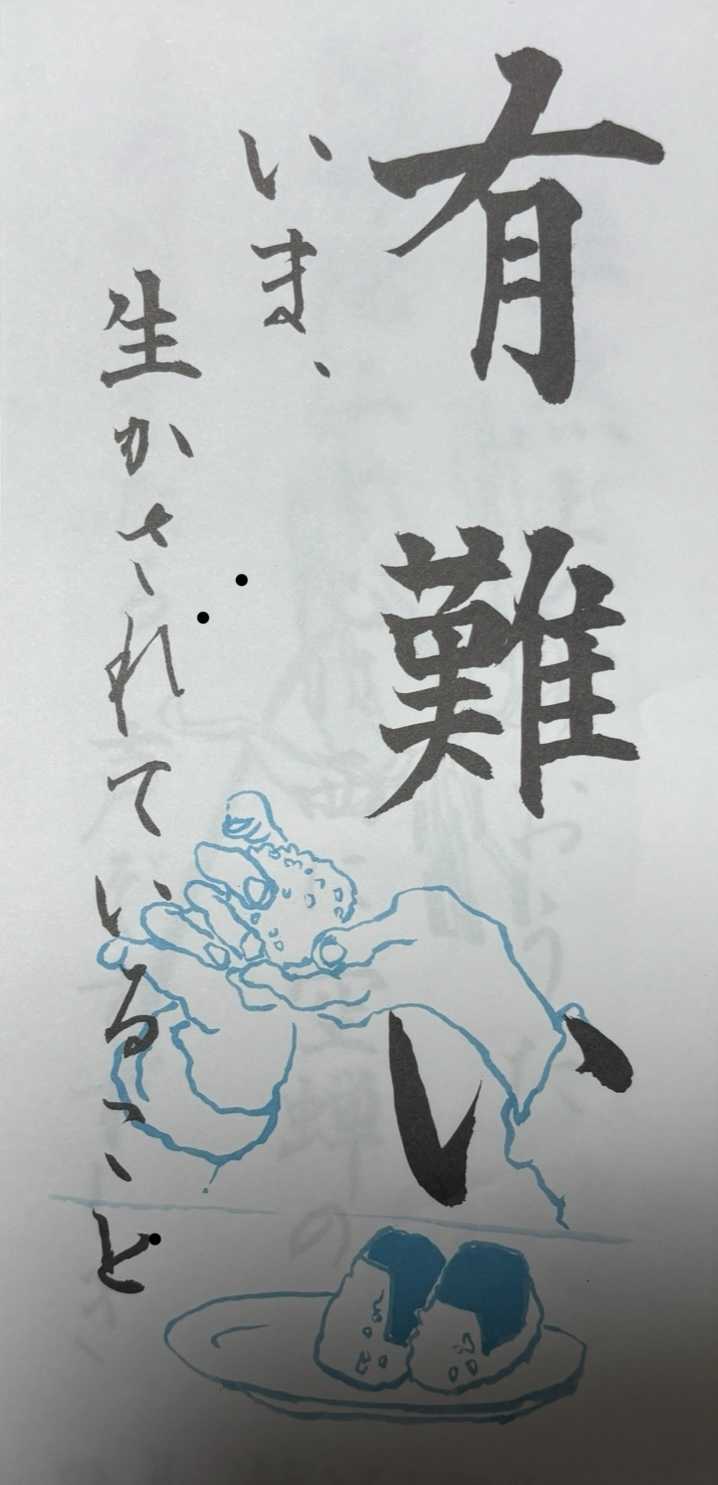 有難い
いま、
生かされていること